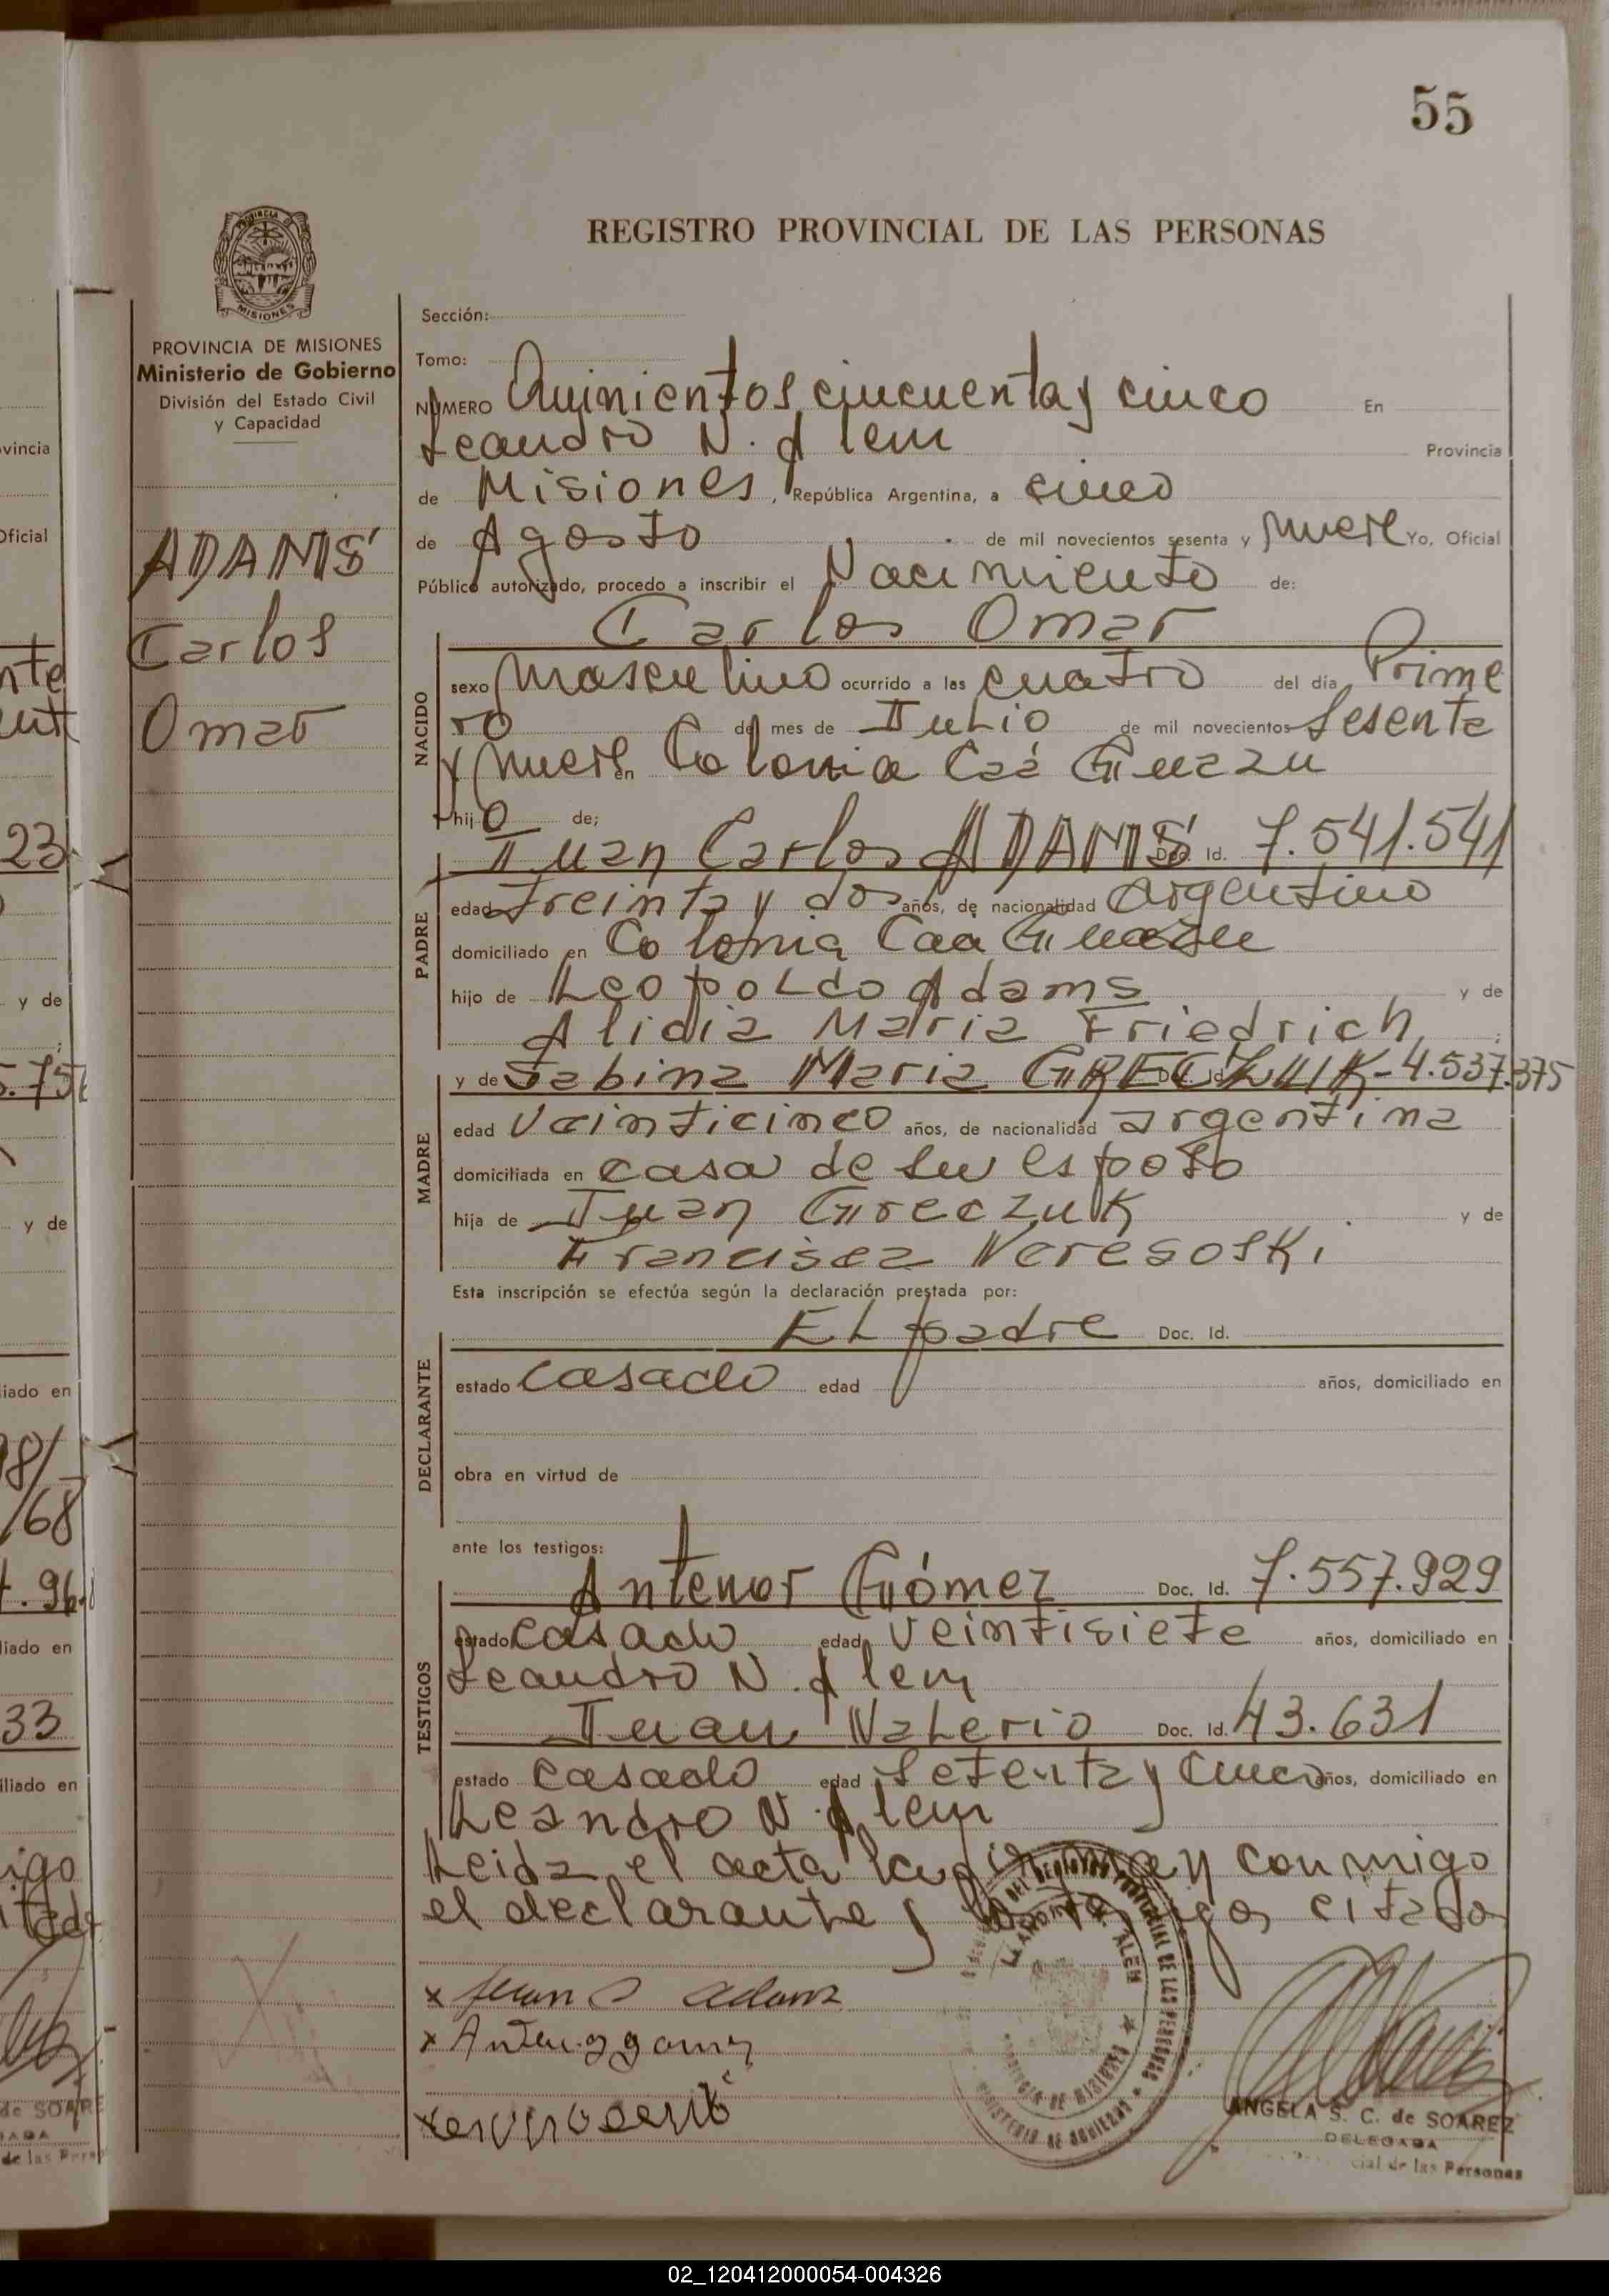 55
REGISTRO PROVINCIAL DE LAS PERSONAS
MISIONES
PROVINCIA DE MISIONES
Ministerio de Gobierno
División del Estado Civil
y Capacidad
ADAMS
Carlos
Omar
Sección:
Tomo:
NUMERO Quinientos cincuenta y cinco En
Leandro N. Alem Provincia
de Misiones, República Argentina, a cinco
de Agosto de mil novecientos sesenta y nueve Yo, Oficial
Público autorizado, procedo a inscribir el Nacimiento de:
Carlos Omar
NACIDO
sexo Masculino ocurrido a las cuatro del día Prime
ro del mes de Julio de mil novecientos Sesenta
y nueve en Colonia Caá Guazzu
hijo de;
PADRE
Juan Carlos ADAMS Doc. Id. 7.541.541
edad Treinta y dos años, de nacionalidad Argentino
domiciliado en Colonia Caa Guazu
hijo de Leopoldo Adams y de
Alidia Maria Friedrich;
MADRE
y de Sabina Maria GRECZUK - 4.537.375
edad Veinticinco años, de nacionalidad argentina
domiciliada en casa de su esposo
hija de Juan Greczuk y de
Francisca Veresoski
Esta inscripción se efectúa según la declaración prestada por:
DECLARANTE
El padre Doc. Id.
estado Casado edad años, domiciliado en
obra en virtud de
ante los testigos:
TESTIGOS
Antenor Gómez Doc. Id. 7.557.929
estado Casado edad Veintisiete años, domiciliado en
Leandro N. Alem
Juan Valerio Doc. Id. 43.631
estado Casado edad Setenta y Cinco años, domiciliado en
Leandro N. Alem
Leida el acta la firman conmigo
el declarante y los testigos citados
x Juan C Adams
x
x
LEANDRO N. ALEM
PROVINCIA DE MISIONES
MINISTERIO DE GOBIERNO
ANGELA S. C. de SOAREZ
DELEGADA
cial de las Personas
vincia
Oficial
23
y de
y de
iado en
/68
liado en
33
iliado en
de SOARE
02_120412000054-004326